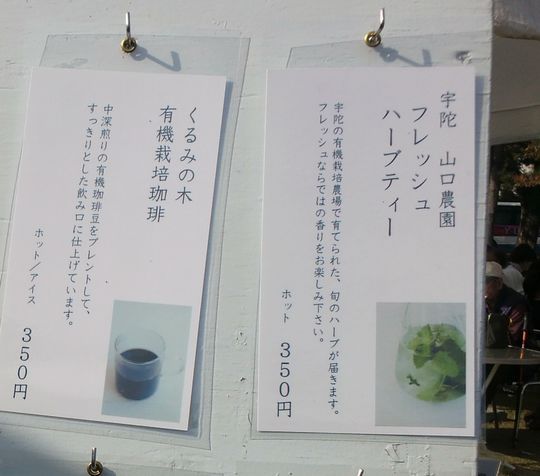 宇陀 山口農園
フレッシュ
ハーブティー
宇陀の有機栽培農場で育てられた、旬のハーブが届きます。
フレッシュならではの香りをお楽しみ下さい。
ホット 350円
くるみの木
有機栽培珈琲
中深煎りの有機珈琲豆をブレントして、
すっきりとした飲み口に仕上げています。
ホット／アイス 350円